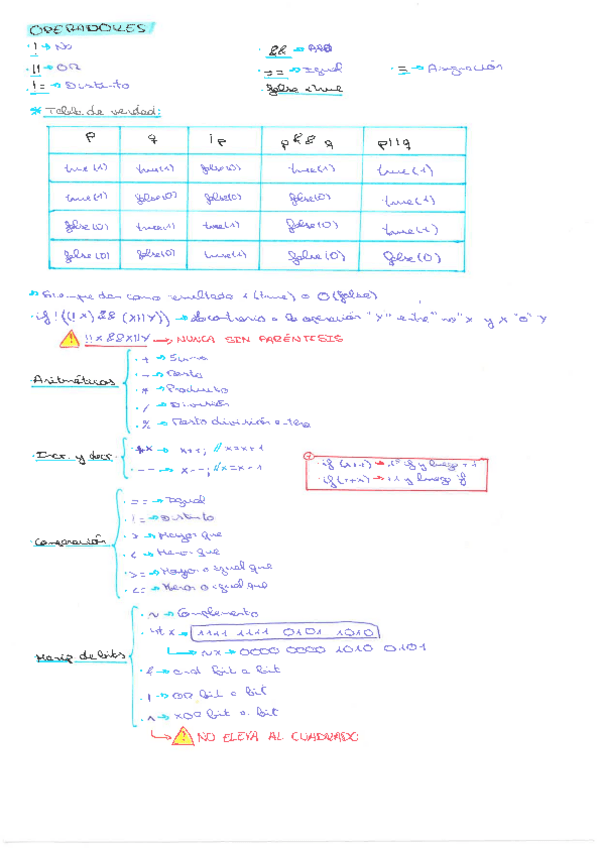 OPERADORES
· ! → No
· && → AND
· || → OR
· == → Igual
· = → Asignación
· != → Distinto
false < true
* Tabla de verdad:
p q !p p && q p||q
true(1) true(1) false(0) true(1) true(1)
true(1) false(0) false(0) false(0) true(1)
false(0) true(1) true(1) false(0) true(1)
false(0) false(0) true(1) false(0) false(0)
→ Siempre dan como resultado 1 (true) o 0 (false)
· if !((!x) && (x||y)) → lo contrario a la operación "y" entre "no" x y x "o" y
!!x&&x||y → NUNCA SIN PARÉNTESIS
Aritméticos
· + → Suma
· - → Resta
· * → Producto
· / → División
· % → Resto división
Incr. y decr.
· ++ → x++; // x=x+1
· -- → x--; // x=x-1
· if (x++) → 1º if y luego +1
· if (++x) → +1 y luego if
Comparación
· == → Igual
· != → Distinto
· > → Mayor que
· < → Menor que
· >= → Mayor o igual que
· <= → Menor o igual que
Manip. de bits
· ~ → Complemento
x → 1111 1111 0101 1010
→ ~x → 0000 0000 1010 0101
· & → and bit a bit
· | → OR bit a bit
· ^ → XOR bit a bit
NO ELEVA AL CUADRADO